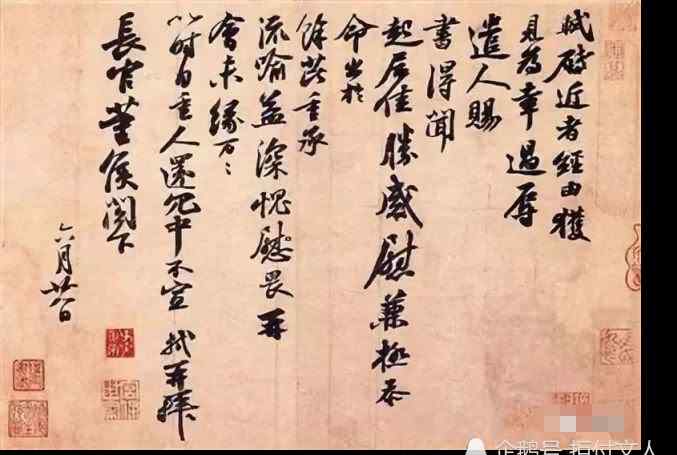 軾啟近者經由獲
見為幸過辱
遣人賜
書得聞
起居佳勝感慰兼極忝
命出於
餘芘重承
流喻益深愧慰畏再
會未緣万〻
以時自重人還冗中不宣 軾再拜
長官董侯閣下
六月廿八日
企鹅号